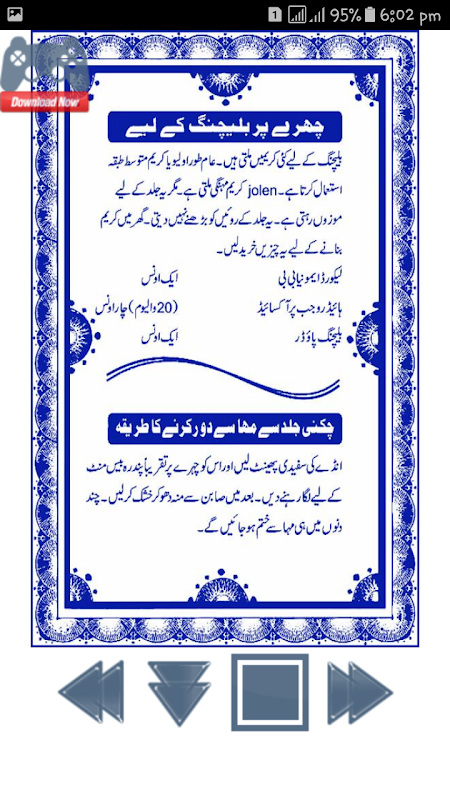 1 95% 6:02 pm
Download Now
چہرے پر بلیچنگ کے لیے
بلیچنگ کے لیے کئی کریمیں ملتی ہیں۔ عام طور اولیو یا کریم متوسط طبقہ
استعمال کرتا ہے۔ jolen کریم مہنگی ملتی ہے۔ مگر یہ جلد کے لیے
موزوں رہتی ہے۔ یہ جلد کے روئیں کو بڑھنے نہیں دیتی۔ گھر میں کریم
بنانے کے لیے یہ چیزیں خرید لیں۔
لیکورڈ ایمونیا بی پی ایک اونس
ہائیڈروجب پر آکسائیڈ (20 والیوم) چار اونس
بلیچنگ پاؤڈر ایک اونس
چکنی جلد سے مہاسے دور کرنے کا طریقہ
انڈے کی سفیدی پھینٹ لیں اور اس کو چہرے پر تقریباً پندرہ بیس منٹ
کے لیے لگا رہنے دیں۔ بعد میں صابن سے منہ دھو کر خشک کر لیں۔ چند
دنوں میں ہی مہاسے ختم ہو جائیں گے۔